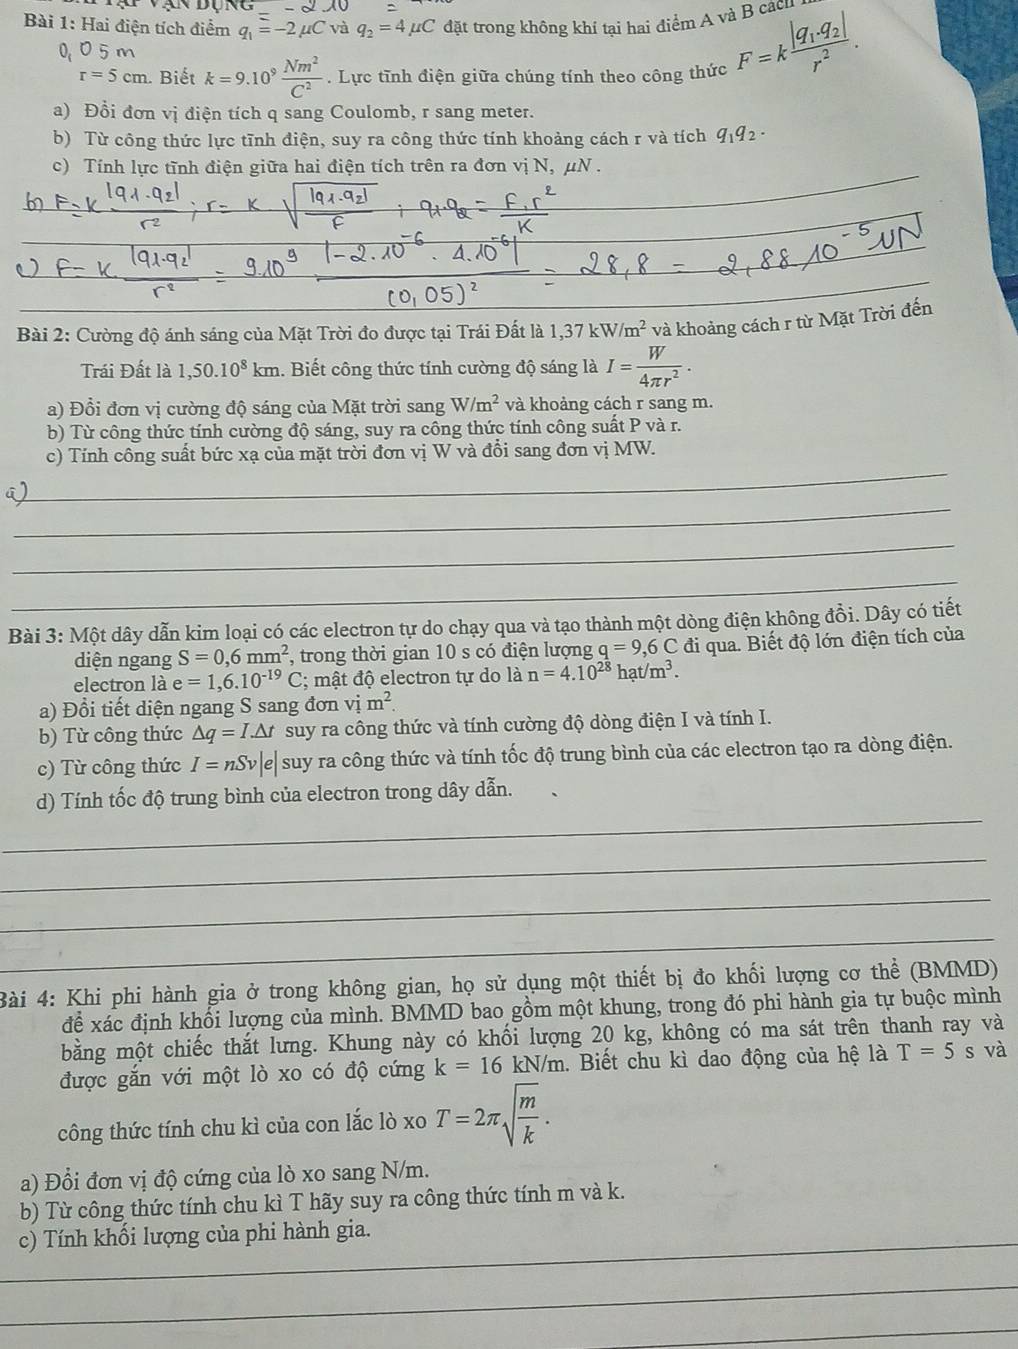 Bài 1: Hai điện tích điểm q₁ = -2 μC và q₂ = 4 μC đặt trong không khí tại hai điểm A và B cách
0,05 m
r = 5 cm. Biết k = 9.10⁹ Nm²/C². Lực tĩnh điện giữa chúng tính theo công thức F = k|q₁.q₂|/r².
a) Đổi đơn vị điện tích q sang Coulomb, r sang meter.
b) Từ công thức lực tĩnh điện, suy ra công thức tính khoảng cách r và tích q₁q₂.
c) Tính lực tĩnh điện giữa hai điện tích trên ra đơn vị N, μN.
b) F = k |q1.q2|/r² ; r = K √(|q1.q2|/F) ; q1.q2 = F.r²/K
c) F = K. |q1.q2|/r² = 9.10⁹ |-2.10⁻⁶ . 4.10⁻⁶|/(0,05)² = 28,8 = 2,88 10⁻⁵ μN
Bài 2: Cường độ ánh sáng của Mặt Trời đo được tại Trái Đất là 1,37 kW/m² và khoảng cách r từ Mặt Trời đến
Trái Đất là 1,50.10⁸ km. Biết công thức tính cường độ sáng là I = W/4πr².
a) Đổi đơn vị cường độ sáng của Mặt trời sang W/m² và khoảng cách r sang m.
b) Từ công thức tính cường độ sáng, suy ra công thức tính công suất P và r.
c) Tính công suất bức xạ của mặt trời đơn vị W và đổi sang đơn vị MW.
a)
Bài 3: Một dây dẫn kim loại có các electron tự do chạy qua và tạo thành một dòng điện không đổi. Dây có tiết
diện ngang S = 0,6 mm², trong thời gian 10 s có điện lượng q = 9,6 C đi qua. Biết độ lớn điện tích của
electron là e = 1,6.10⁻¹⁹ C; mật độ electron tự do là n = 4.10²⁸ hạt/m³.
a) Đổi tiết diện ngang S sang đơn vị m².
b) Từ công thức Δq = I.Δt suy ra công thức và tính cường độ dòng điện I và tính I.
c) Từ công thức I = nSv|e| suy ra công thức và tính tốc độ trung bình của các electron tạo ra dòng điện.
d) Tính tốc độ trung bình của electron trong dây dẫn.
Bài 4: Khi phi hành gia ở trong không gian, họ sử dụng một thiết bị đo khối lượng cơ thể (BMMD)
để xác định khối lượng của mình. BMMD bao gồm một khung, trong đó phi hành gia tự buộc mình
bằng một chiếc thắt lưng. Khung này có khối lượng 20 kg, không có ma sát trên thanh ray và
được gắn với một lò xo có độ cứng k = 16 kN/m. Biết chu kì dao động của hệ là T = 5 s và
công thức tính chu kì của con lắc lò xo T = 2π√(m/k).
a) Đổi đơn vị độ cứng của lò xo sang N/m.
b) Từ công thức tính chu kì T hãy suy ra công thức tính m và k.
c) Tính khối lượng của phi hành gia.